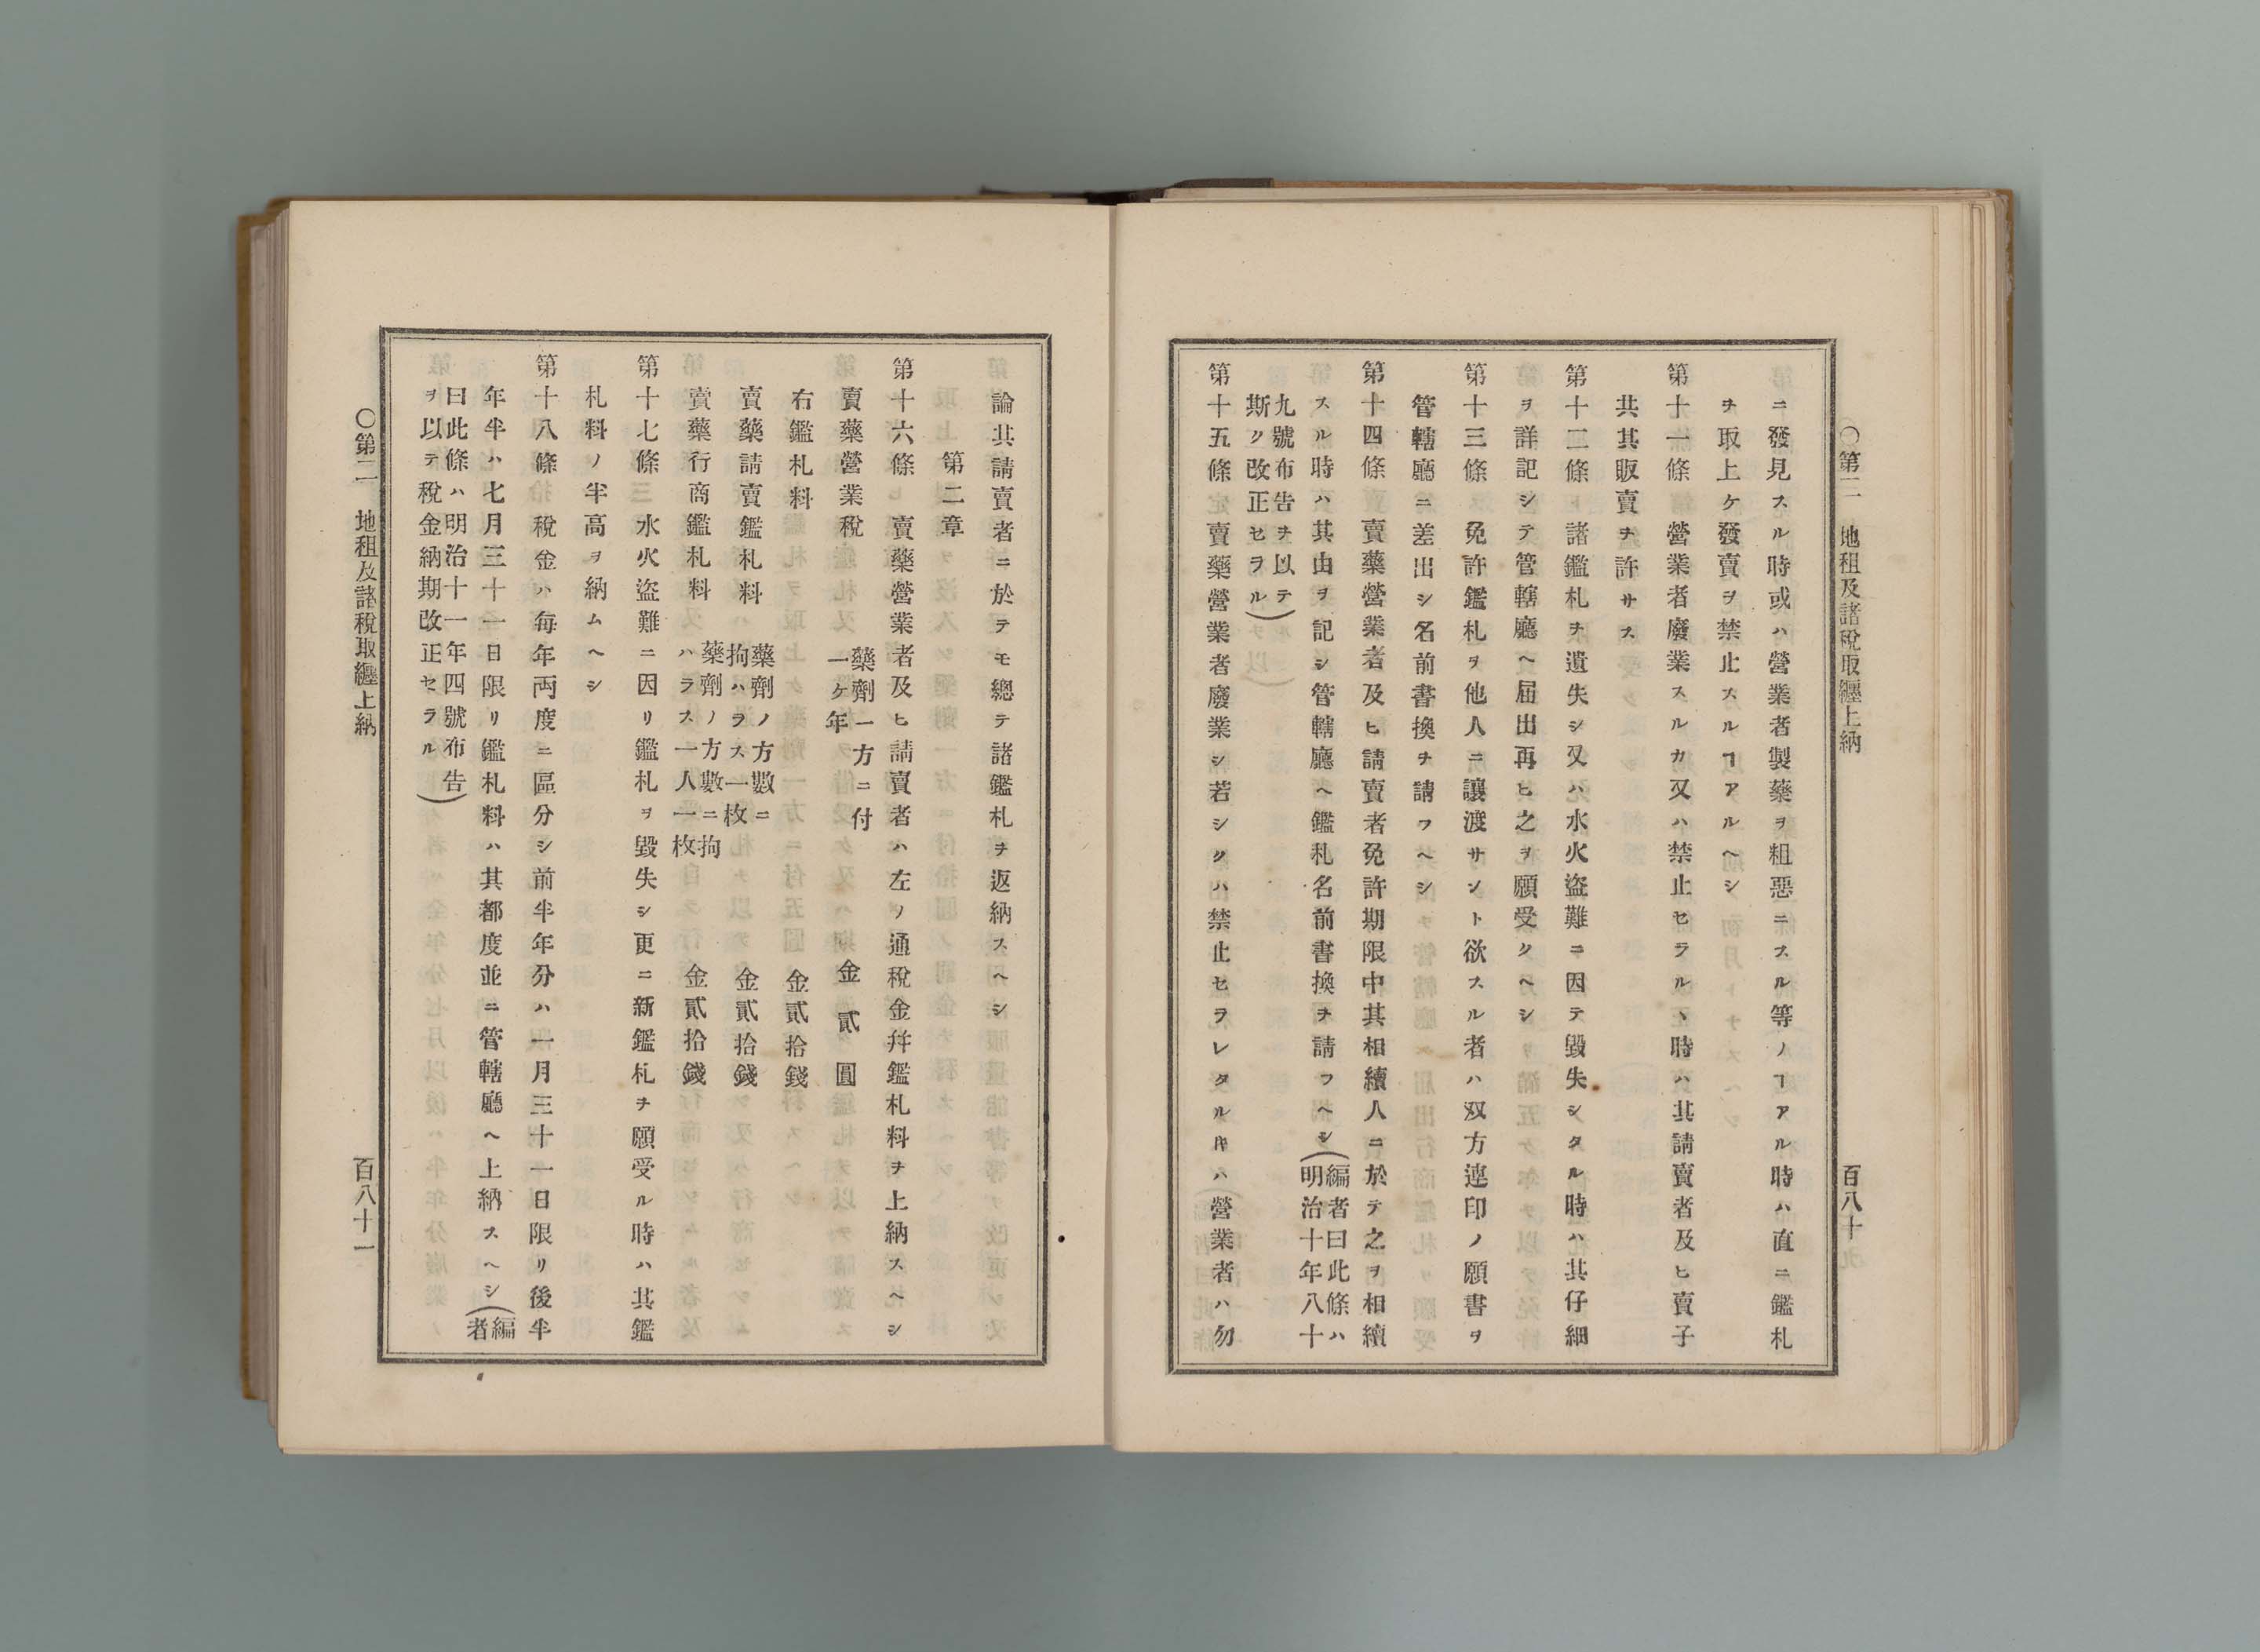 〇第二　地租及諸稅取纏上納　百八十
ニ發見スル時或ハ營業者製藥ヲ粗惡ニスル等ノヿアル時ハ直ニ鑑札
ヲ取上ケ發賣ヲ禁止スルヿアルヘシ
第十一條　營業者廢業スルカ又ハ禁止セラルヽ時ハ其請賣者及ヒ賣子
共其販賣ヲ許サス
第十二條　諸鑑札ヲ遺失シ又ハ水火盜難ニ因テ毀失シタル時ハ其仔細
ヲ詳記シテ管轄廳ヘ屆出再ヒ之ヲ願受クヘシ
第十三條　免許鑑札ヲ他人ニ讓渡サント欲スル者ハ双方連印ノ願書ヲ
管轄廳ニ差出シ名前書換ヲ請フヘシ
第十四條　賣藥營業者及ヒ請賣者免許期限中其相續人ニ於テ之ヲ相續
スル時ハ其由ヲ記シ管轄廳ヘ鑑札名前書換ヲ請フヘシ(編者曰此條ハ
明治十年八十
九號布告ヲ以テ
斯ク改正セラル)
第十五條　賣藥營業者廢業シ若シクハ禁止セラレタル𪜈ハ營業者ハ勿
論其請賣者ニ於テモ總テ諸鑑札ヲ返納スヘシ
第二章
第十六條　賣藥營業者及ヒ請賣者ハ左ノ通稅金幷鑑札料ヲ上納スヘシ
賣藥營業稅　藥劑一方ニ付
一ケ年　金貳圓
右鑑札料　金貳拾錢
賣藥請賣鑑札料　藥劑ノ方數ニ
拘ハラス一枚　金貳拾錢
賣藥行商鑑札料　藥劑ノ方數ニ拘
ハラス一人一枚　金貳拾錢
第十七條　水火盜難ニ因リ鑑札ヲ毀失シ更ニ新鑑札ヲ願受ル時ハ其鑑
札料ノ半高ヲ納ムヘシ
第十八條　稅金ハ每年両度ニ區分シ前半年分ハ一月三十一日限リ後半
年半ハ七月三十一日限リ鑑札料ハ其都度並ニ管轄廳ヘ上納スヘシ(編
者
曰此條ハ明治十一年四號布告)
ヲ以テ稅金納期改正セラル
〇第二　地租及諸稅取纏上納　百八十一